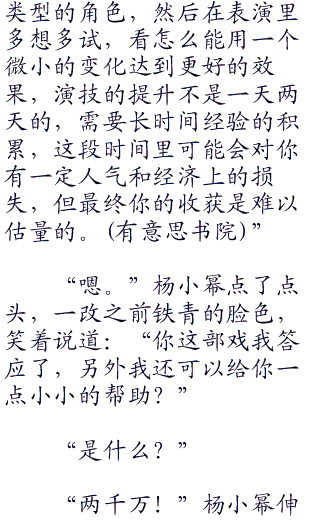 类型的角色，然后在表演里
多想多试，看怎么能用一个
微小的变化达到更好的效
果，演技的提升不是一天两
天的，需要长时间经验的积
累，这段时间里可能会对你
有一定人气和经济上的损
失，但最终你的收获是难以
估量的。(有意思书院)”
“嗯。”杨小幂点了点
头，一改之前铁青的脸色，
笑着说道：“你这部戏我答
应了，另外我还可以给你一
点小小的帮助？”
“是什么？”
“两千万！”杨小幂伸